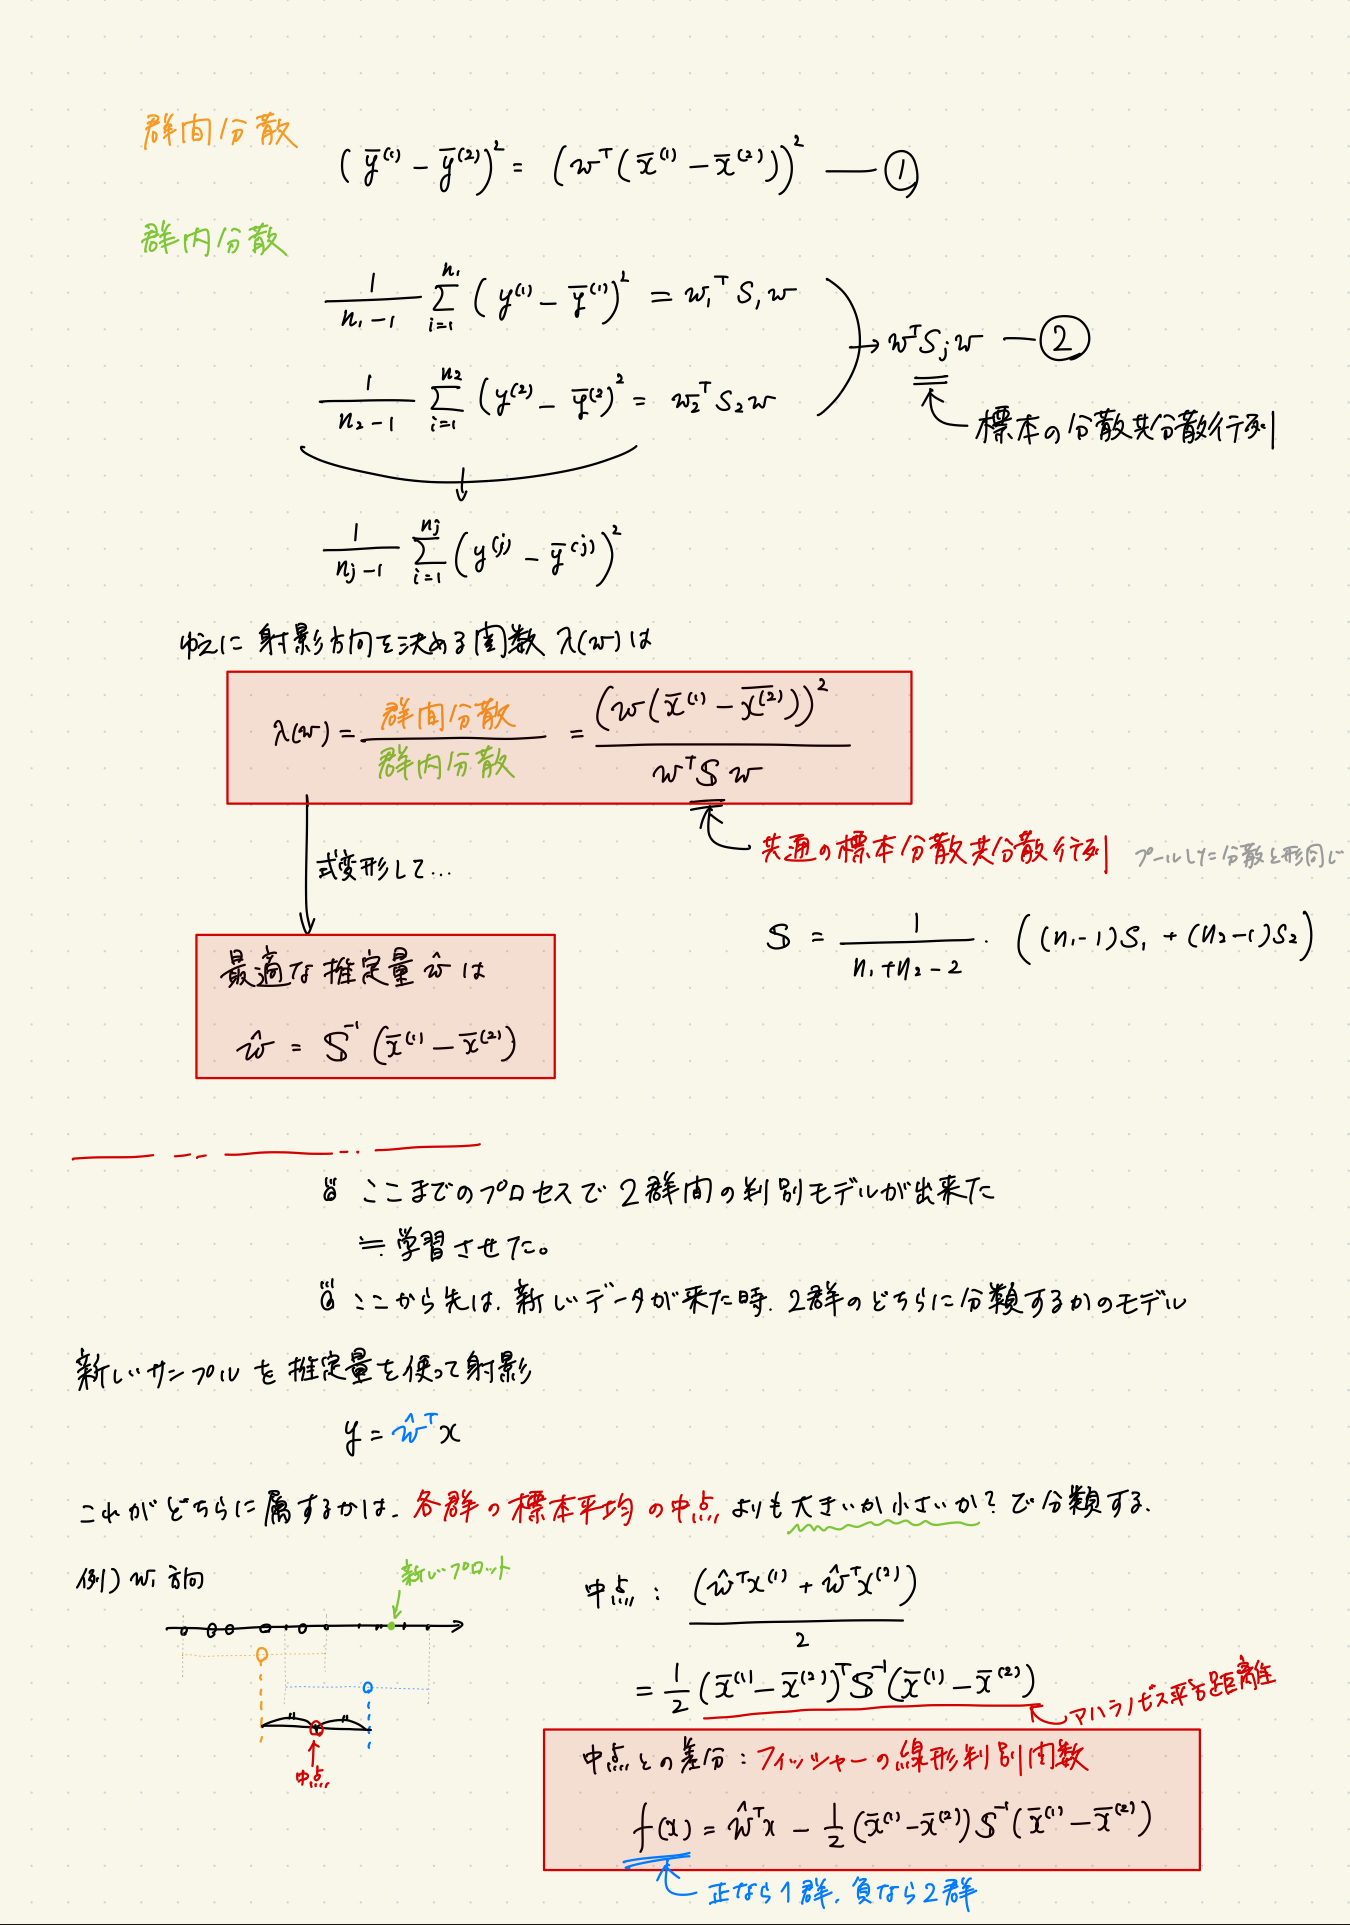 群間分散
(ȳ⁽¹⁾ − ȳ⁽²⁾)² = (wᵀ(x̄⁽¹⁾ − x̄⁽²⁾))² — ①
群内分散
1/(n₁−1) Σ_{i=1}^{n₁} (y⁽¹⁾ − ȳ⁽¹⁾)² = w₁ᵀ S₁ w
→ wᵀ Sⱼ w — ②
1/(n₂−1) Σ_{i=1}^{n₂} (y⁽²⁾ − ȳ⁽²⁾)² = w₂ᵀ S₂ w
標本の分散共分散行列
1/(nj−1) Σ_{i=1}^{nj} (y⁽ʲ⁾ − ȳ⁽ʲ⁾)²
ゆえに 射影方向を決める関数 λ(w)は
λ(w) = 群間分散/群内分散 = (w(x̄⁽¹⁾ − x̄⁽²⁾))² / wᵀ S w
共通の標本分散共分散行列 プールした分散と形同じ
式変形して...
S = 1/(n₁+n₂−2) · ((n₁−1)S₁ + (n₂−1)S₂)
最適な推定量 ŵ は
ŵ = S⁻¹ (x̄⁽¹⁾ − x̄⁽²⁾)
ここまでのプロセスで 2群間の判別モデルが出来た
≒ 学習させた。
ここから先は、新しいデータが来た時、2群のどちらに分類するかのモデル
新しいサンプルを推定量を使って射影
y = ŵᵀx
これがどちらに属するかは、各群の標本平均の中点よりも大きいか小さいか?で分類する、
例) w₁ 方向
新しいプロット
中点
中点 : (ŵᵀx⁽¹⁾ + ŵᵀx⁽²⁾) / 2
= 1/2 (x̄⁽¹⁾ − x̄⁽²⁾)ᵀ S⁻¹ (x̄⁽¹⁾ − x̄⁽²⁾)
マハラノビス平方距離
中点との差分 : フィッシャーの線形判別関数
f(x) = ŵᵀx − 1/2 (x̄⁽¹⁾ − x̄⁽²⁾) S⁻¹ (x̄⁽¹⁾ − x̄⁽²⁾)
正なら1群、負なら2群